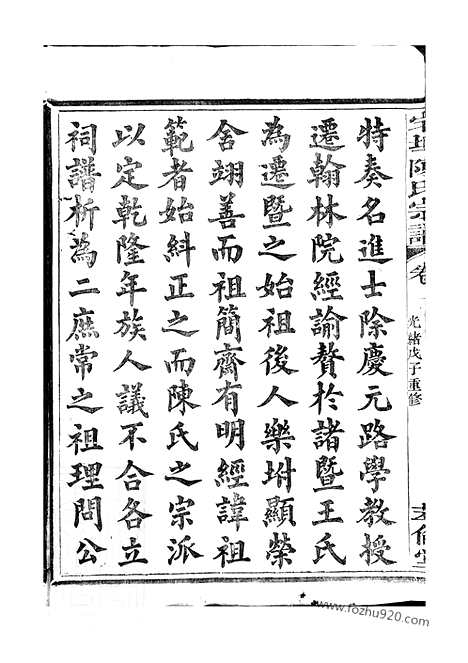 陳氏宗譜 卷
光緒戊子重修
特奏名進士除慶元路學教授
遷翰林院經諭贅於諸暨王氏
為遷暨之始祖後人樂坿顯榮
舍翊善而祖簡齋有明經諱祖
範者始糾正之而陳氏之宗派
以定乾隆年族人議不合各立
祠譜析為二庶常之祖理問公
www.fozhu920.com